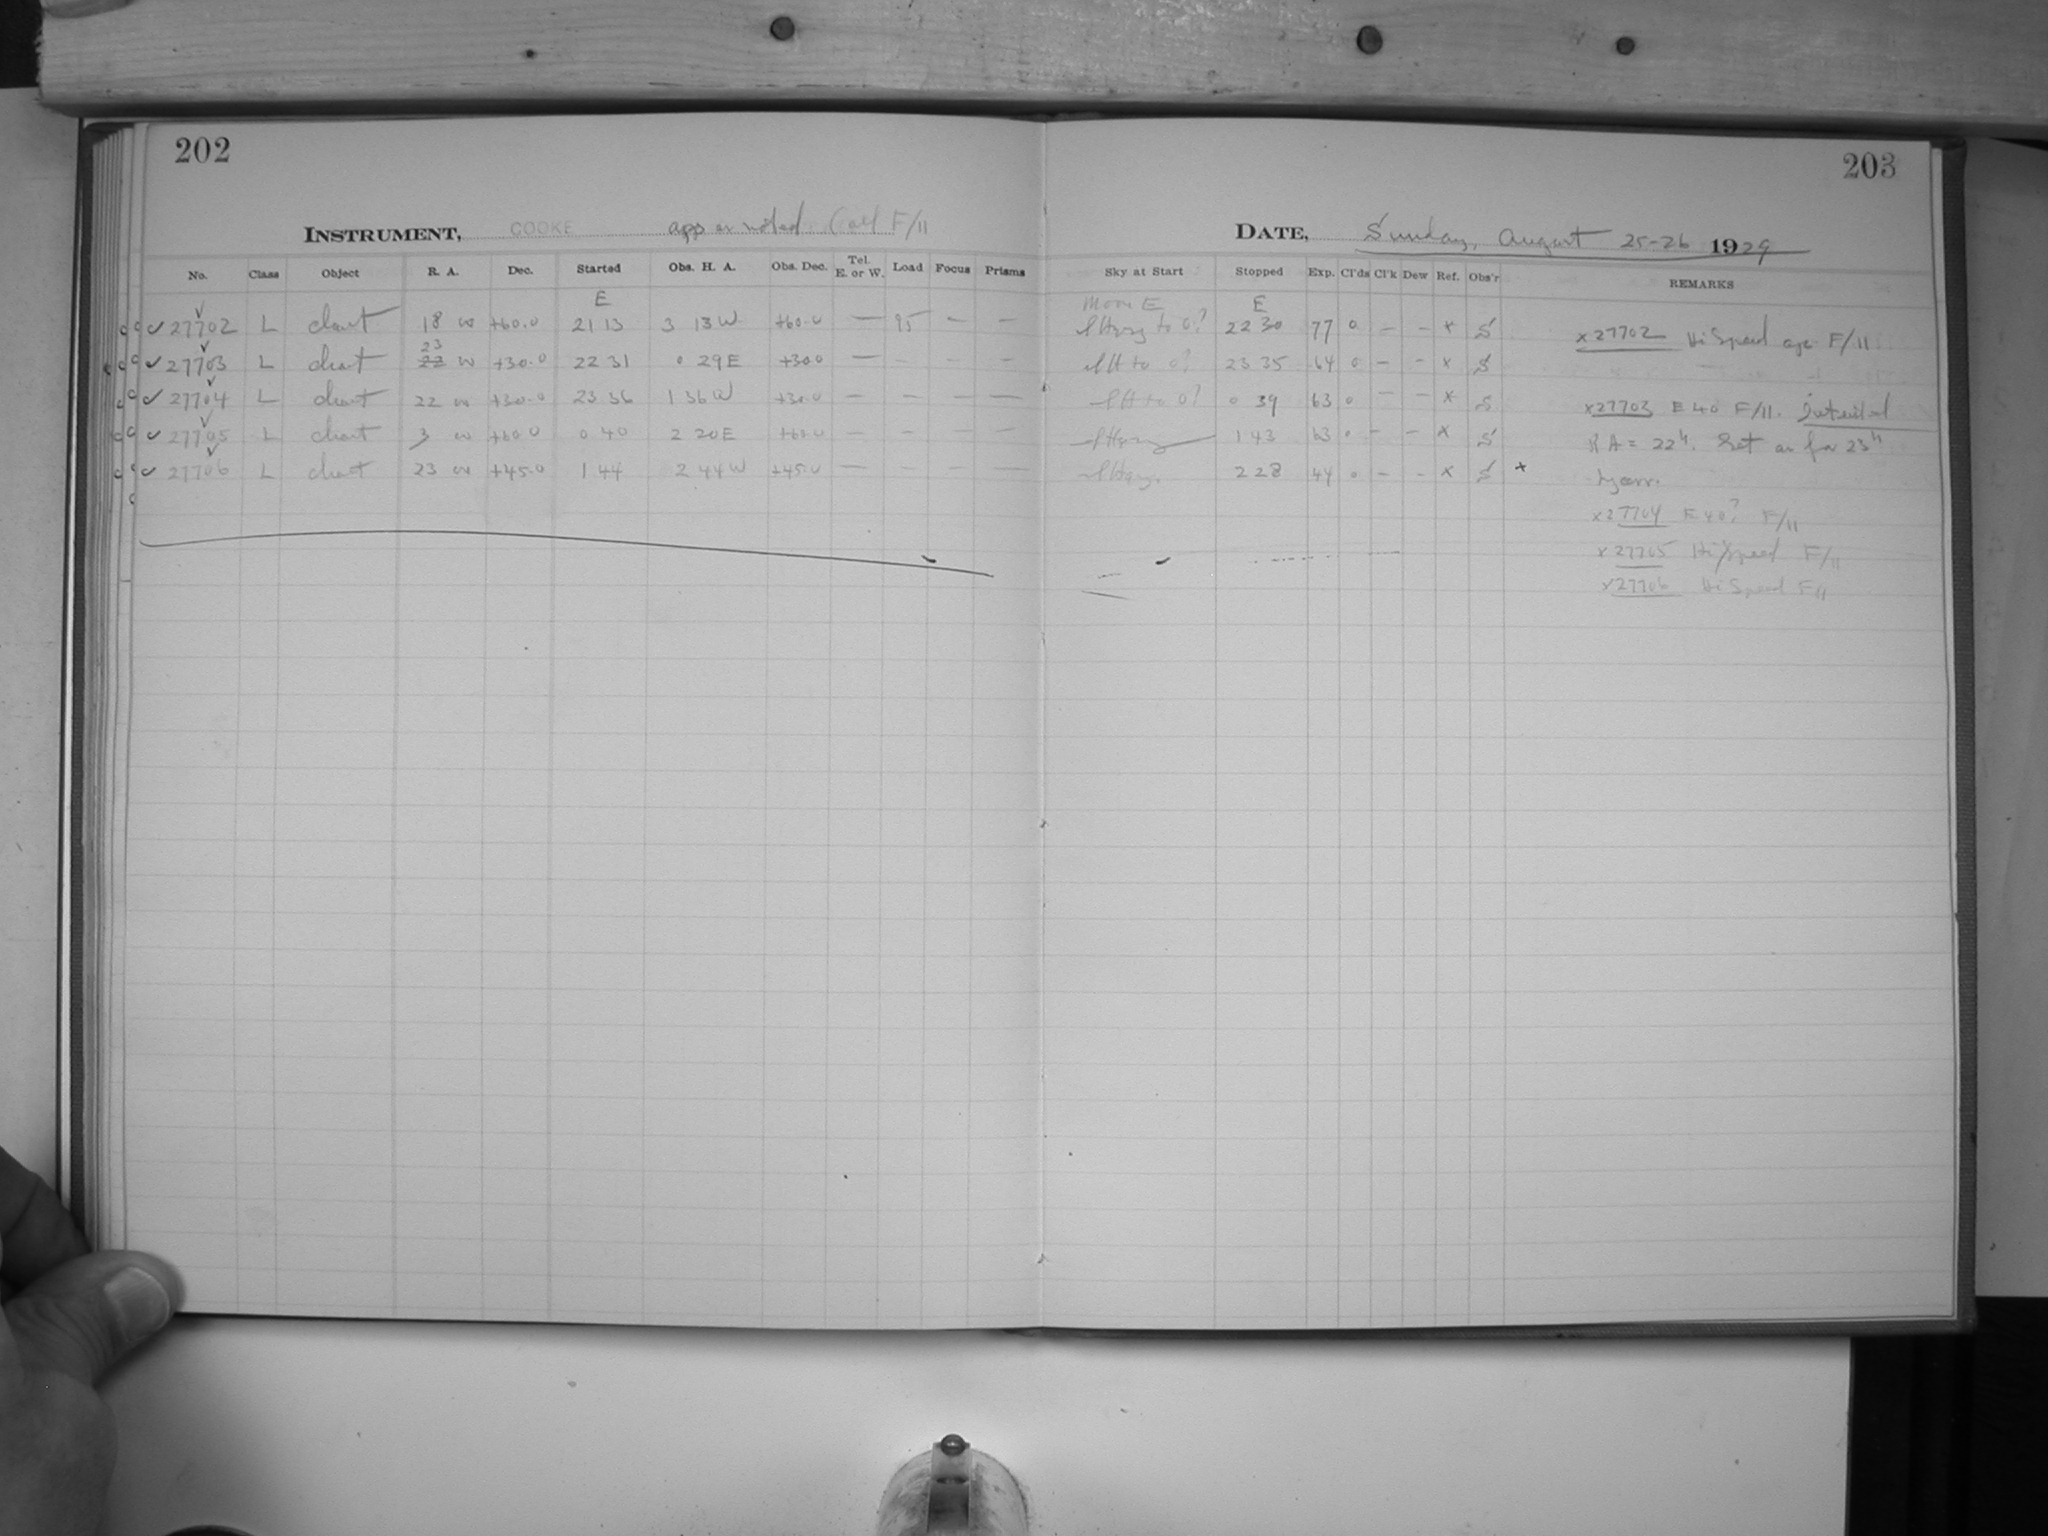 202
203
INSTRUMENT, COOKE app as noted (all F/11
DATE, Sunday, August 25-26 1929
No. Class Object R. A. Dec. Started Obs. H. A. Obs. Dec. Tel. E. or W. Load Focus Prisms
Sky at Start Stopped Exp. Cl'ds Cl'k Dew Ref. Obs'r REMARKS
E Moon E E
27702 L chart 18 00 +60.0 21 13 3 13 W +60.0 — 95 — — to 0? 22 30 77 0 — — x S
x27702 Hi Speed F/11
23
27703 L chart 22 00 +30.0 22 31 0 29 E +30.0 — — — — to 0? 23 35 64 0 — — x S
27704 L chart 22 00 +30.0 23 36 1 36 W +30.0 — — — — to 0? 0 39 63 0 — — x S
x27703 E 40 F/11.
27705 L chart 3 00 +60.0 0 40 2 20 E +60.0 — — — — 1 43 63 0 — — x S
RA = 22h. Set as for 23h
27706 L chart 23 00 +45.0 1 44 2 44 W +45.0 — — — — 2 28 44 0 — — x S x
x27704 E 40? F/11
x27705 Hi Speed F/11
x27706 Hi Speed F/11